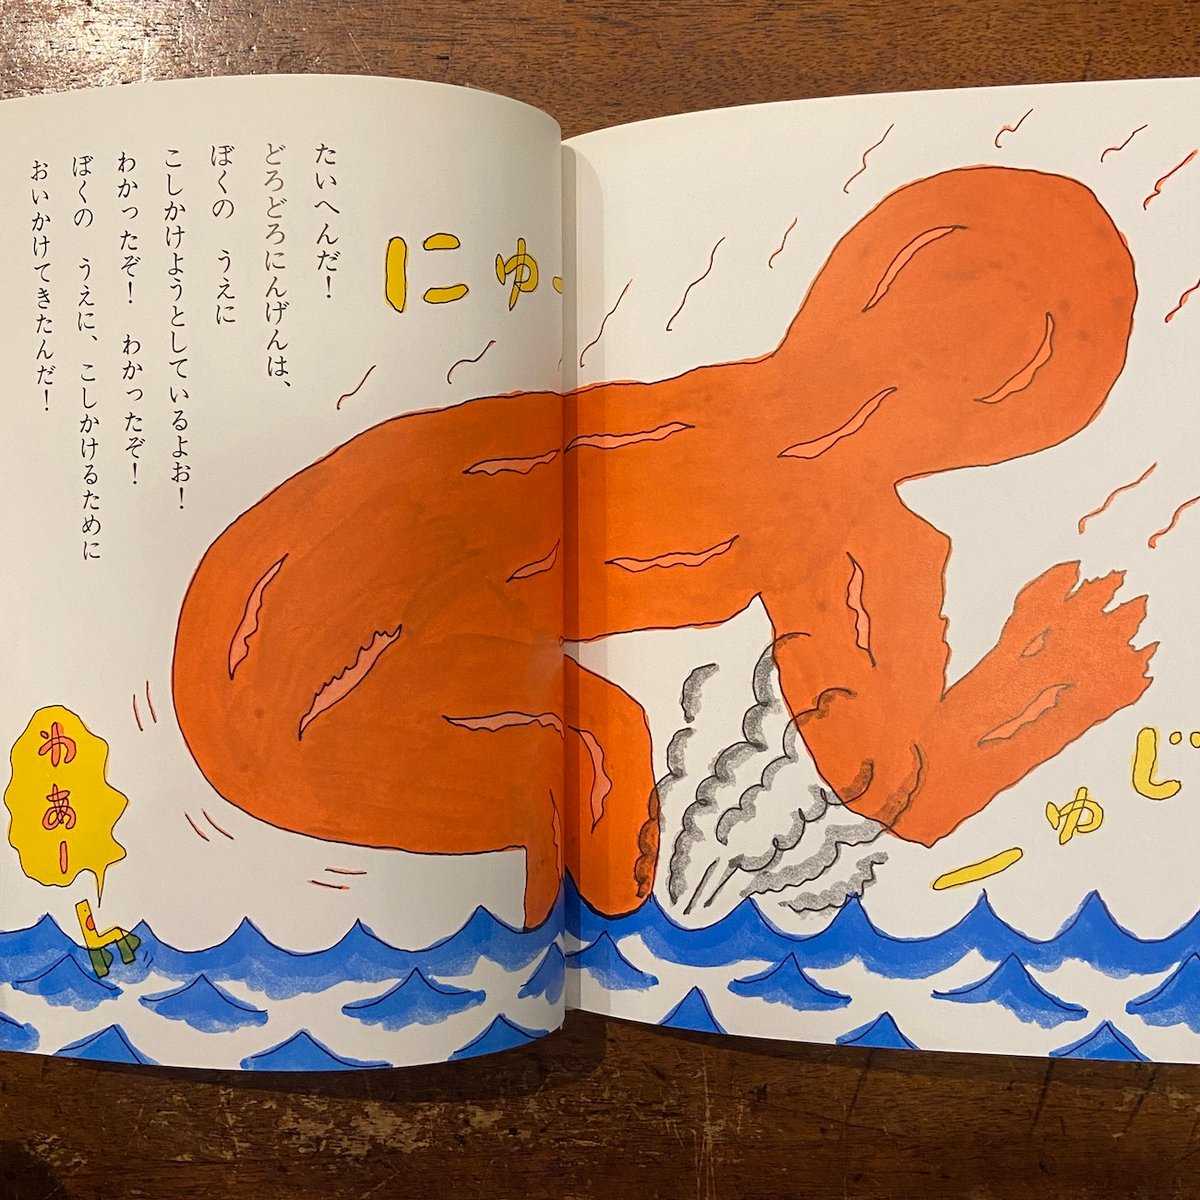 たいへんだ！
どろどろにんげんは、
ぼくの　うえに
こしかけようとしているよお！
わかったぞ！　わかったぞ！
ぼくの　うえに、こしかけるために
おいかけてきたんだ！
にゅー
じゅー
わあー